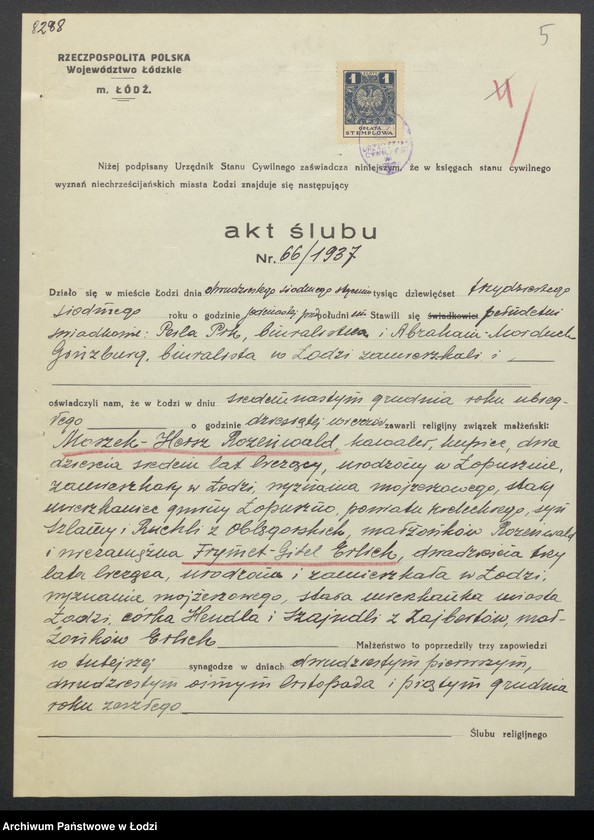 8288
5
RZECZPOSPOLITA POLSKA
Województwo Łódzkie
m. ŁÓDŹ.
1 ZŁOTY 1
OPŁATA
STEMPLOWA
Niżej podpisany Urzędnik Stanu Cywilnego zaświadcza niniejszym, że w księgach stanu cywilnego
wyznań niechrześcijańskich miasta Łodzi znajduje się następujący
akt ślubu
Nr. 66/1937
Działo się w mieście Łodzi dnia dwudziestego siódmego stycznia tysiąc dziewięćset trzydziestego
siódmego roku o godzinie jedenastej przed południem. Stawili się świadkowie pełnoletni
świadkowie: Perla Prk, biuralistka i Abraham-Morduch
Ginzburg, biuralista w Łodzi zamieszkali i
oświadczyli nam, że w Łodzi w dniu siedemnastym grudnia roku ubieg-
łego o godzinie dziesiątej wieczór zawarli religijny związek małżeński:
Moszek-Hersz Rozenwald, kawaler, kupiec, dwa
dzieścia siedem lat liczący, urodzony w Łopusznie,
zamieszkały w Łodzi, wyznania mojżeszowego, stały
mieszkaniec gminy Łopuszno, powiatu kieleckiego, syn
Szlamy i Ruchli z Oblęgorskich, małżonków Rozenwald
i niezamężna Frymet-Gitel Erlich, dwadzieścia trzy
lata licząca, urodzona i zamieszkała w Łodzi,
wyznania mojżeszowego, stała mieszkanka miasta
Łodzi, córka Hendla i Szajndli z Zajbertów, mał-
żonków Erlich Małżeństwo to poprzedziły trzy zapowiedzi
w tutejszej synagodze w dniach dwudziestym pierwszym,
dwudziestym ósmym listopada i piątym grudnia
roku zeszłego
Ślubu religijnego
Archiwum Państwowe w Łodzi